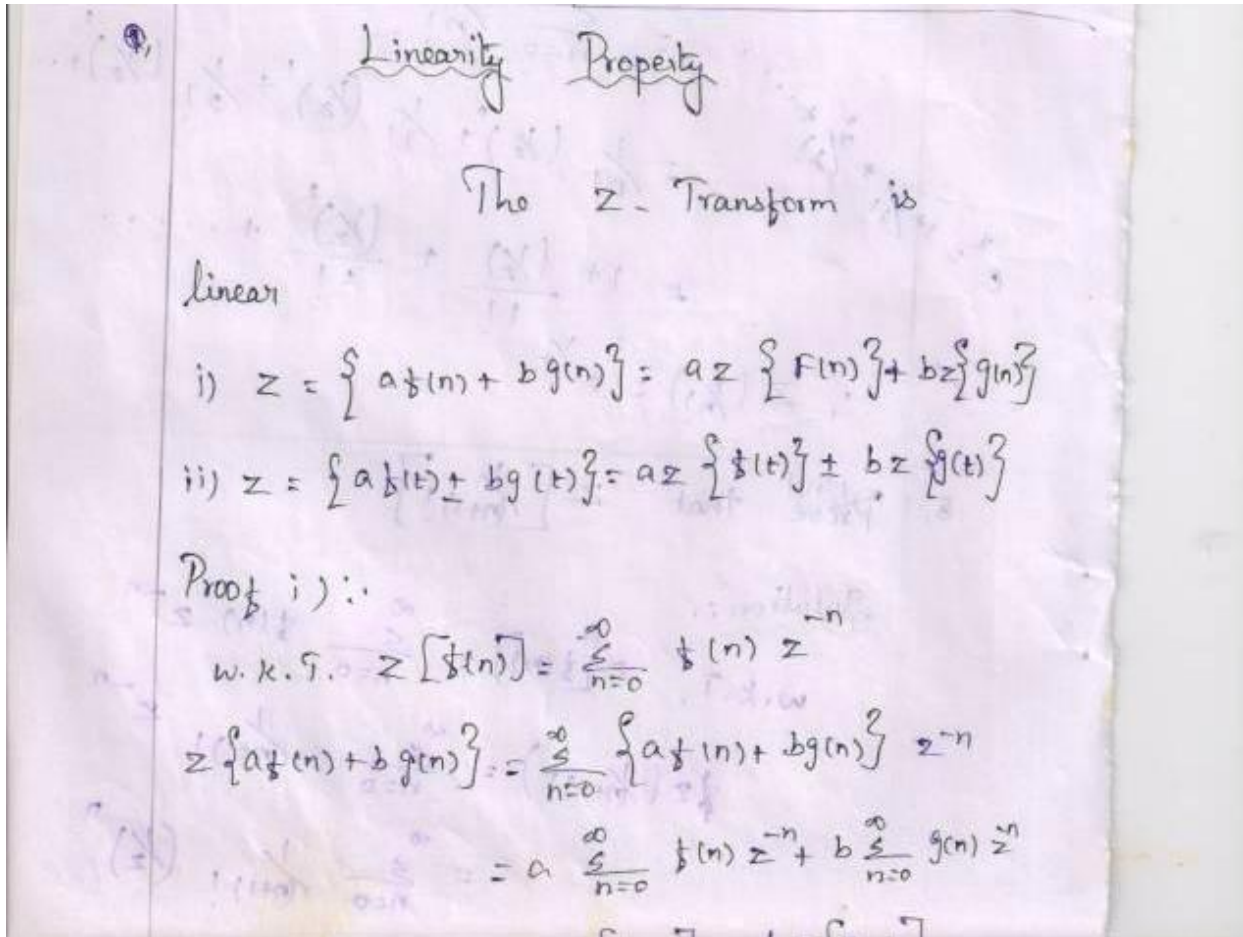 Linearity Property
The Z- Transform is
linear
i) z = { af(n) + b g(n)} = az { F(n)} + bz{g(n)}
ii) z = {af(t) ± bg(t)} = az {f(t)} ± bz {g(t)}
Proof i) :.
w.k.T. z [f(n)] = ∞Σn=0 f(n) z⁻ⁿ
z {af(n) + b g(n)} = ∞Σn=0 {af(n) + bg(n)} z⁻ⁿ
= a ∞Σn=0 f(n) z⁻ⁿ + b ∞Σn=0 g(n) z⁻ⁿ